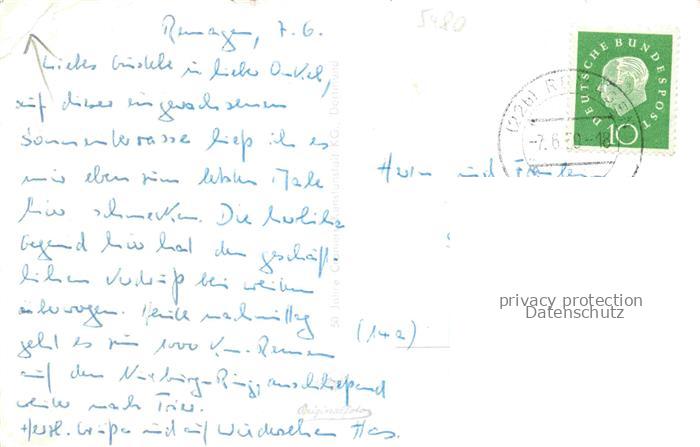 Remagen, 7. 6.
5480
Liebes lieber Onkel,
auf dieser eingewachsenen
Sonnenterrasse ließ ich es
mir eben zum letzten Male
hier schmecken. Die herrliche
Gegend hier hat den geschäft-
lichen Verdruß bei weitem
überwogen. Heute nachmittag
geht es zum 1000 Km-Rennen
auf dem Nürburg-Ring, anschließend
weiter nach Trier.
Herzl. Grüße und auf Wiedersehen
DEUTSCHE BUNDESPOST
10
(22b)
-7. 6. 59 -18
Herrn und
(14a)
privacy protection
Datenschutz
50 Jahre